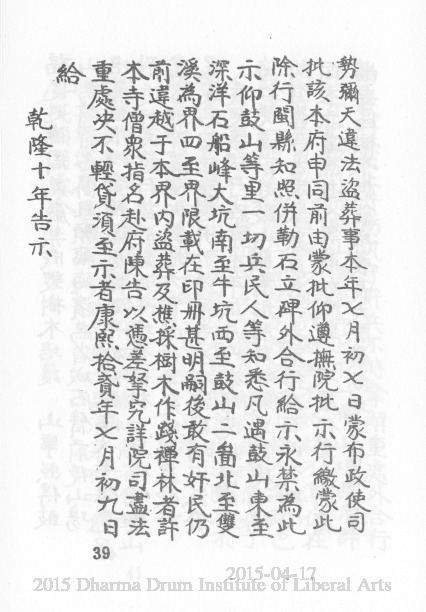 勢彌天違法盜葬事本年七月初七日蒙布政使司
批該本府申同前由蒙批仰遵撫院批示行繳蒙此
除行閩縣知照併勒石立碑外合行給示永禁為此
示仰鼓山等里一切兵民人等知悉凡遇鼓山東至
深洋石船峰大坑南至牛坑西至鼓山二崙北至雙
溪為界四至界限載在印冊甚明嗣後敢有奸民仍
前違越于本界內盜葬及樵採樹木作踐禪林者許
本寺僧衆指名赴府陳告以憑差拏究詳院司盡法
重處央不輕貸須至示者康熙拾貳年七月初九日
給
乾隆十年告示
39
2015-04-17
2015 Dharma Drum Institute of Liberal Arts